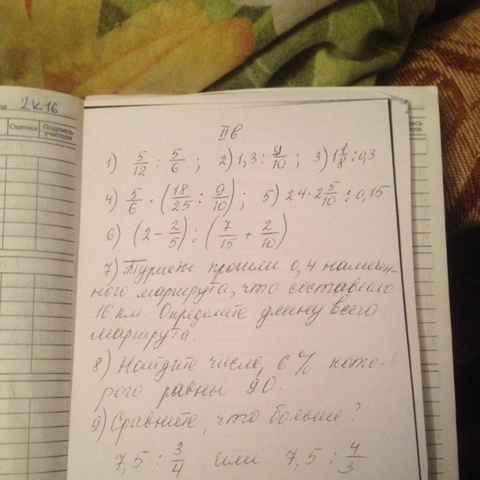 2к.16
Оценка Подпись учителя
II в.
1) 5/12 : 5/6 ; 2) 1,3 : 9/10 ; 3) 1 1/8 : 0,3
4) 5/6 · (18/25 : 9/10) ; 5) 24 · 2 5/10 : 0,15
6) (2 - 2/5) : (7/15 + 2/10)
7) Туристы прошли 0,4 намечен-
нного маршрута, что составило
16 км. Определите длину всего
маршрута.
8) Найдите число, 6 % кото-
рого равны 90.
9) Сравните, что больше?
7,5 : 3/4 или 7,5 : 4/3